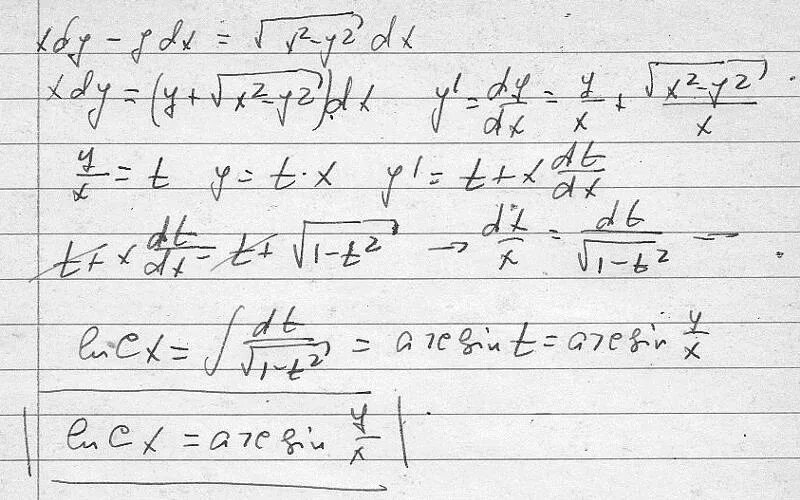 xdy - ydx = √(x²-y²) dx
xdy = (y + √(x²-y²))dx   y' = dy/dx = y/x + √(x²-y²)/x
y/x = t   y = t·x   y' = t + x dt/dx
t + x dt/dx = t + √(1-t²) → dx/x = dt/√(1-t²) —
ln Cx = ∫ dt/√(1-t²) = arcsin t = arcsin y/x
ln Cx = arcsin y/x